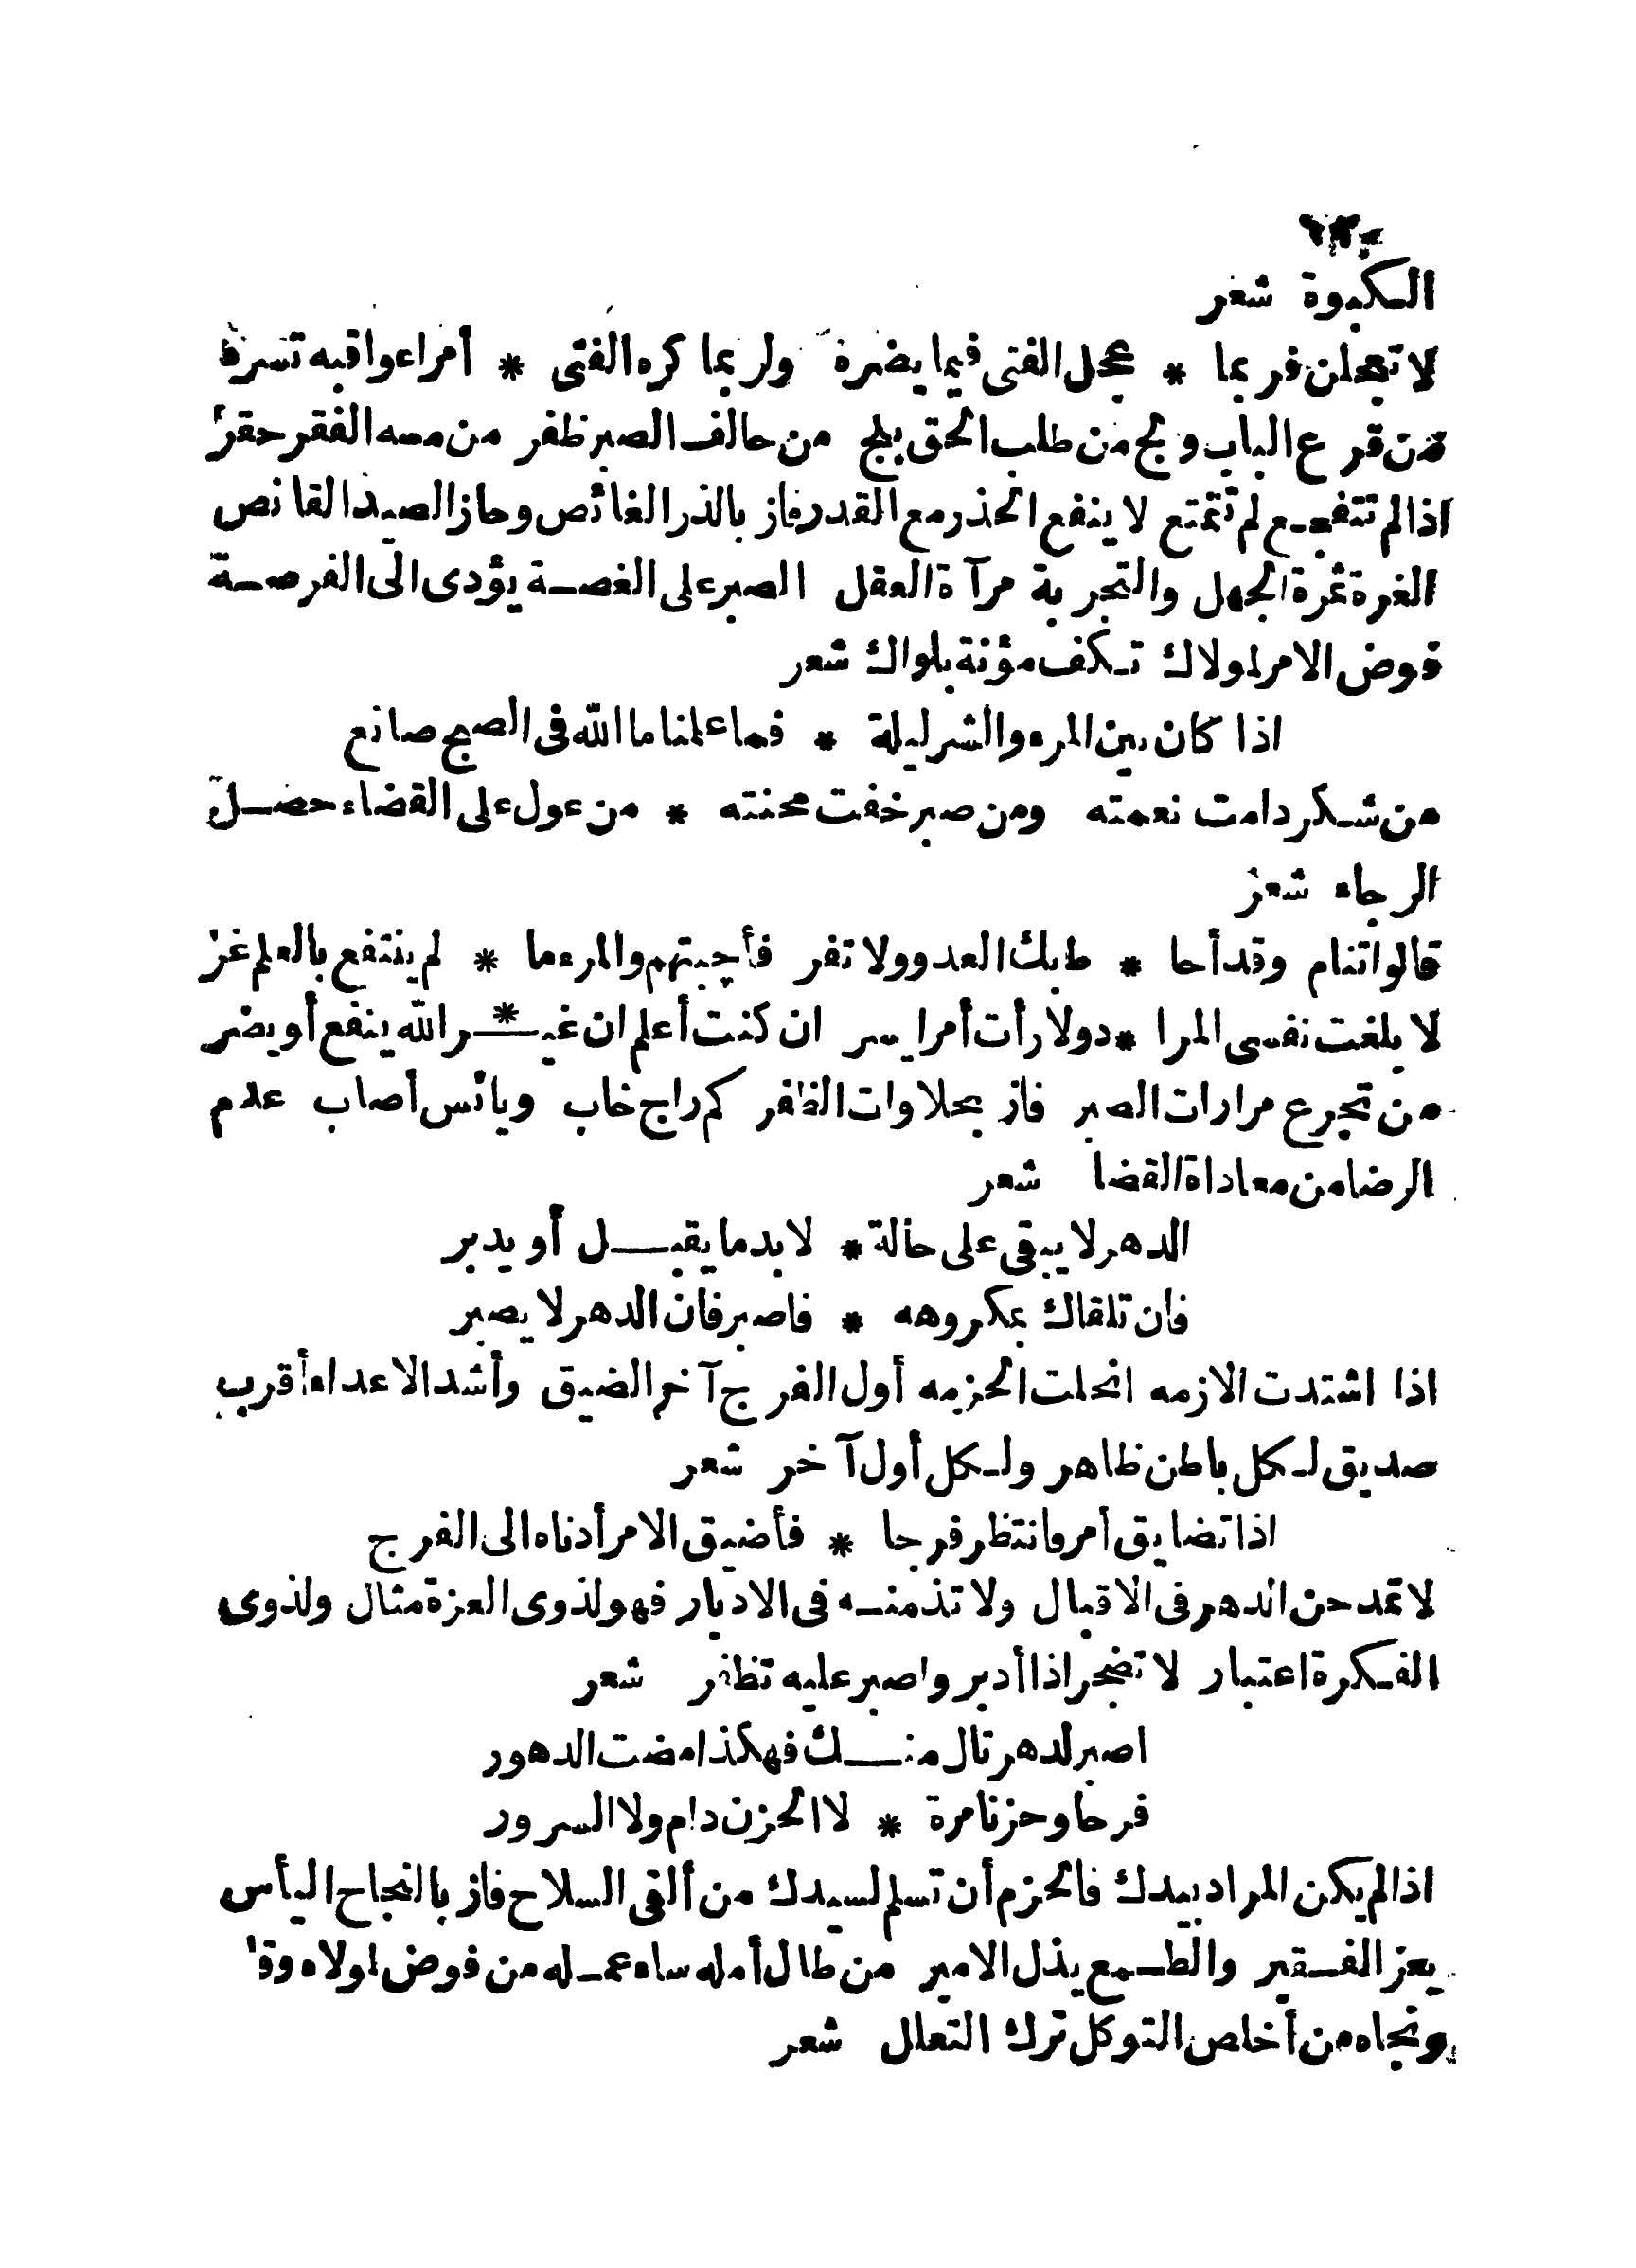 الكبوة شعر
لا تعجلن فربما * عجل الفتى فيما يضره ولربما كره الفتى * أمرا عواقبه تسره
من قرع الباب ولج من طلب الحق يلج من حالف الصبر ظفر من مسه الفقر حقر
اذا لم تنتفع لم تتمتع لا ينفع الحذر مع القدر فاز بالدر الغائص وحاز الصيد القانص
الغرة ثمرة الجهل والتجربة مرآة العقل الصبر على الغصة يؤدى الى الفرصة
فوض الامر لمولاك تكف مؤنة بلواك شعر
اذا كان بين المرء والشر ليلة * فما علمنا ما الله فى الصبح صانع
من شكر دامت نعمته ومن صبر خفت محنته * من عول على القضاء حصل
الرجاء شعر
قالوا تنام وقد أحا * ط بك العدو ولا تفر فأجبتهم والمرء ما * لم ينتفع بالعلم غر
لا بلغت نفسى المرا * د ولا رأت أمرا يسر ان كنت أعلم ان غيـ * ـر الله ينفع أو يضر
من تجرع مرارات الصبر فاز بحلاوات الظفر كم راج خاب ويائس أصاب عدم
الرضا من معاداة القضا شعر
الدهر لا يبقى على حالة * لا بد ما يقبل أو يدبر
فان تلقاك بمكروهه * فاصبر فان الدهر لا يصبر
اذا اشتدت الازمه انحلت الحزمه أول الفرج آخر الضيق وأشد الاعداء أقرب
صديق لكل باطن ظاهر ولكل أول آخر شعر
اذا تضايق أمر فانتظر فرجا * فأضيق الامر أدناه الى الفرج
لا تمدحن الدهر فى الاقبال ولا تذمنه فى الادبار فهو لذوى العزة مثال ولذوى
الفكرة اعتبار لا تضجر اذا أدبر واصبر عليه تظفر شعر
اصبر لدهر نال منك فهكذا مضت الدهور
فرحا وحزنا مرة * لا الحزن دام ولا السرور
اذا لم يكن المراد بيدك فالحزم أن تسلم لسيدك من ألقى السلاح فاز بالنجاح اليأس
يعز الفقير والطمع يذل الامير من طال أمله ساء عمله من فوض لمولاه وقا
ونجاه من أخلص التوكل ترك التعلل شعر